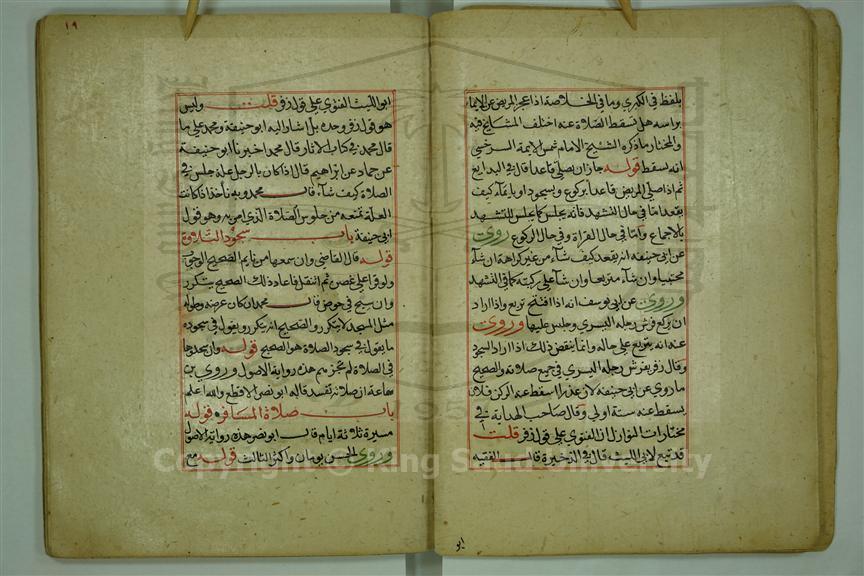 بلفظ في الكبرى وما في الخلاصة اذا عجز المريض عن الايماء
براسه هل تسقط الصلاة عنه اختلف المشايخ فيه
والمختار ما ذكره الشيخ الامام شمس الايمة السرخسي
انه يسقط قوله جاز ان يصلي قاعدا قال في البدايع
ثم اذا صلى المريض قاعدا بركوع وسجود او بايماء كيف
يقعد اما في حال التشهد فانه يجلس كما يجلس للتشهد
بالاجماع واما في حال القراة وفي حال الركوع روي
عن ابي حنيفة انه يقعد كيف شاء من غير كراهة ان شاء
محتبيا وان شاء متربعا وان شاء على ركبتيه كما في التشهد
وروي عن ابي يوسف انه اذا افتتح تربع واذا اراد
ان يركع فرش رجله اليسرى وجلس عليها وروي
عنه انه يتربع على حاله وانما ينقض ذلك اذا اراد السجود
وقال زفر يفرش رجله اليسرى في جميع صلاته والصحيح
ما روي عن ابي حنيفة لان عذر المرض اسقط عنه الركن فلان
يسقط عنه سنة اولى وقال صاحب الهداية في
مختارات النوازل ان الفتوى على قول زفر قلت
قد تبع لابي الليث قال في الذخيرة قال الفقيه
ابو
١٩
ابو الليث الفتوى على قول زفر قلت وليس
هو قول زفر وحده بل اشار اليه ابو حنيفة ومحمد على ما
قال محمد في كتاب الاثار قال محمد اخبرنا ابو حنيفة
عن حماد عن ابراهيم قال اذا كان بالرجل علة جلس في
الصلاة كيف شاء قال محمد وبه ناخذ اذا كانت
العلة تمنعه من جلوس الصلاة الذي امر به وهو قول
ابي حنيفة باب سجود التلاوة
قوله قال القاضي وان سمعها من نايم الصحيح الوجوب
ولو قرا على غصن ثم انتقل فاعاد ذلك الصحيح يتكرر
وان سبح في حوض قال محمد ان كان عرضه وطوله
مثل المسجد لا يتكرر والصحيح انه يتكرر ويقول في سجوده
ما يقول في سجود الصلاة هو الصحيح قوله وان سجدوها
في الصلاة لم تجزهم هذه رواية الاصول وروي بن
سماعة ان صلاته تفسد قاله ابو نصر الاقطع والله اعلم
باب صلاة المسافر قوله
مسيرة ثلاثة ايام قال ابو نصر هذه رواية الاصول
وروى الحسن يومان واكثر الثالث قوله مع
Copyright © King Saud University